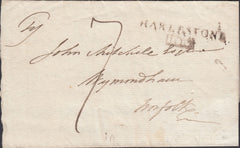 HARLESTONE
7
John Mitchell Esqr
Wymondham
Norfolk